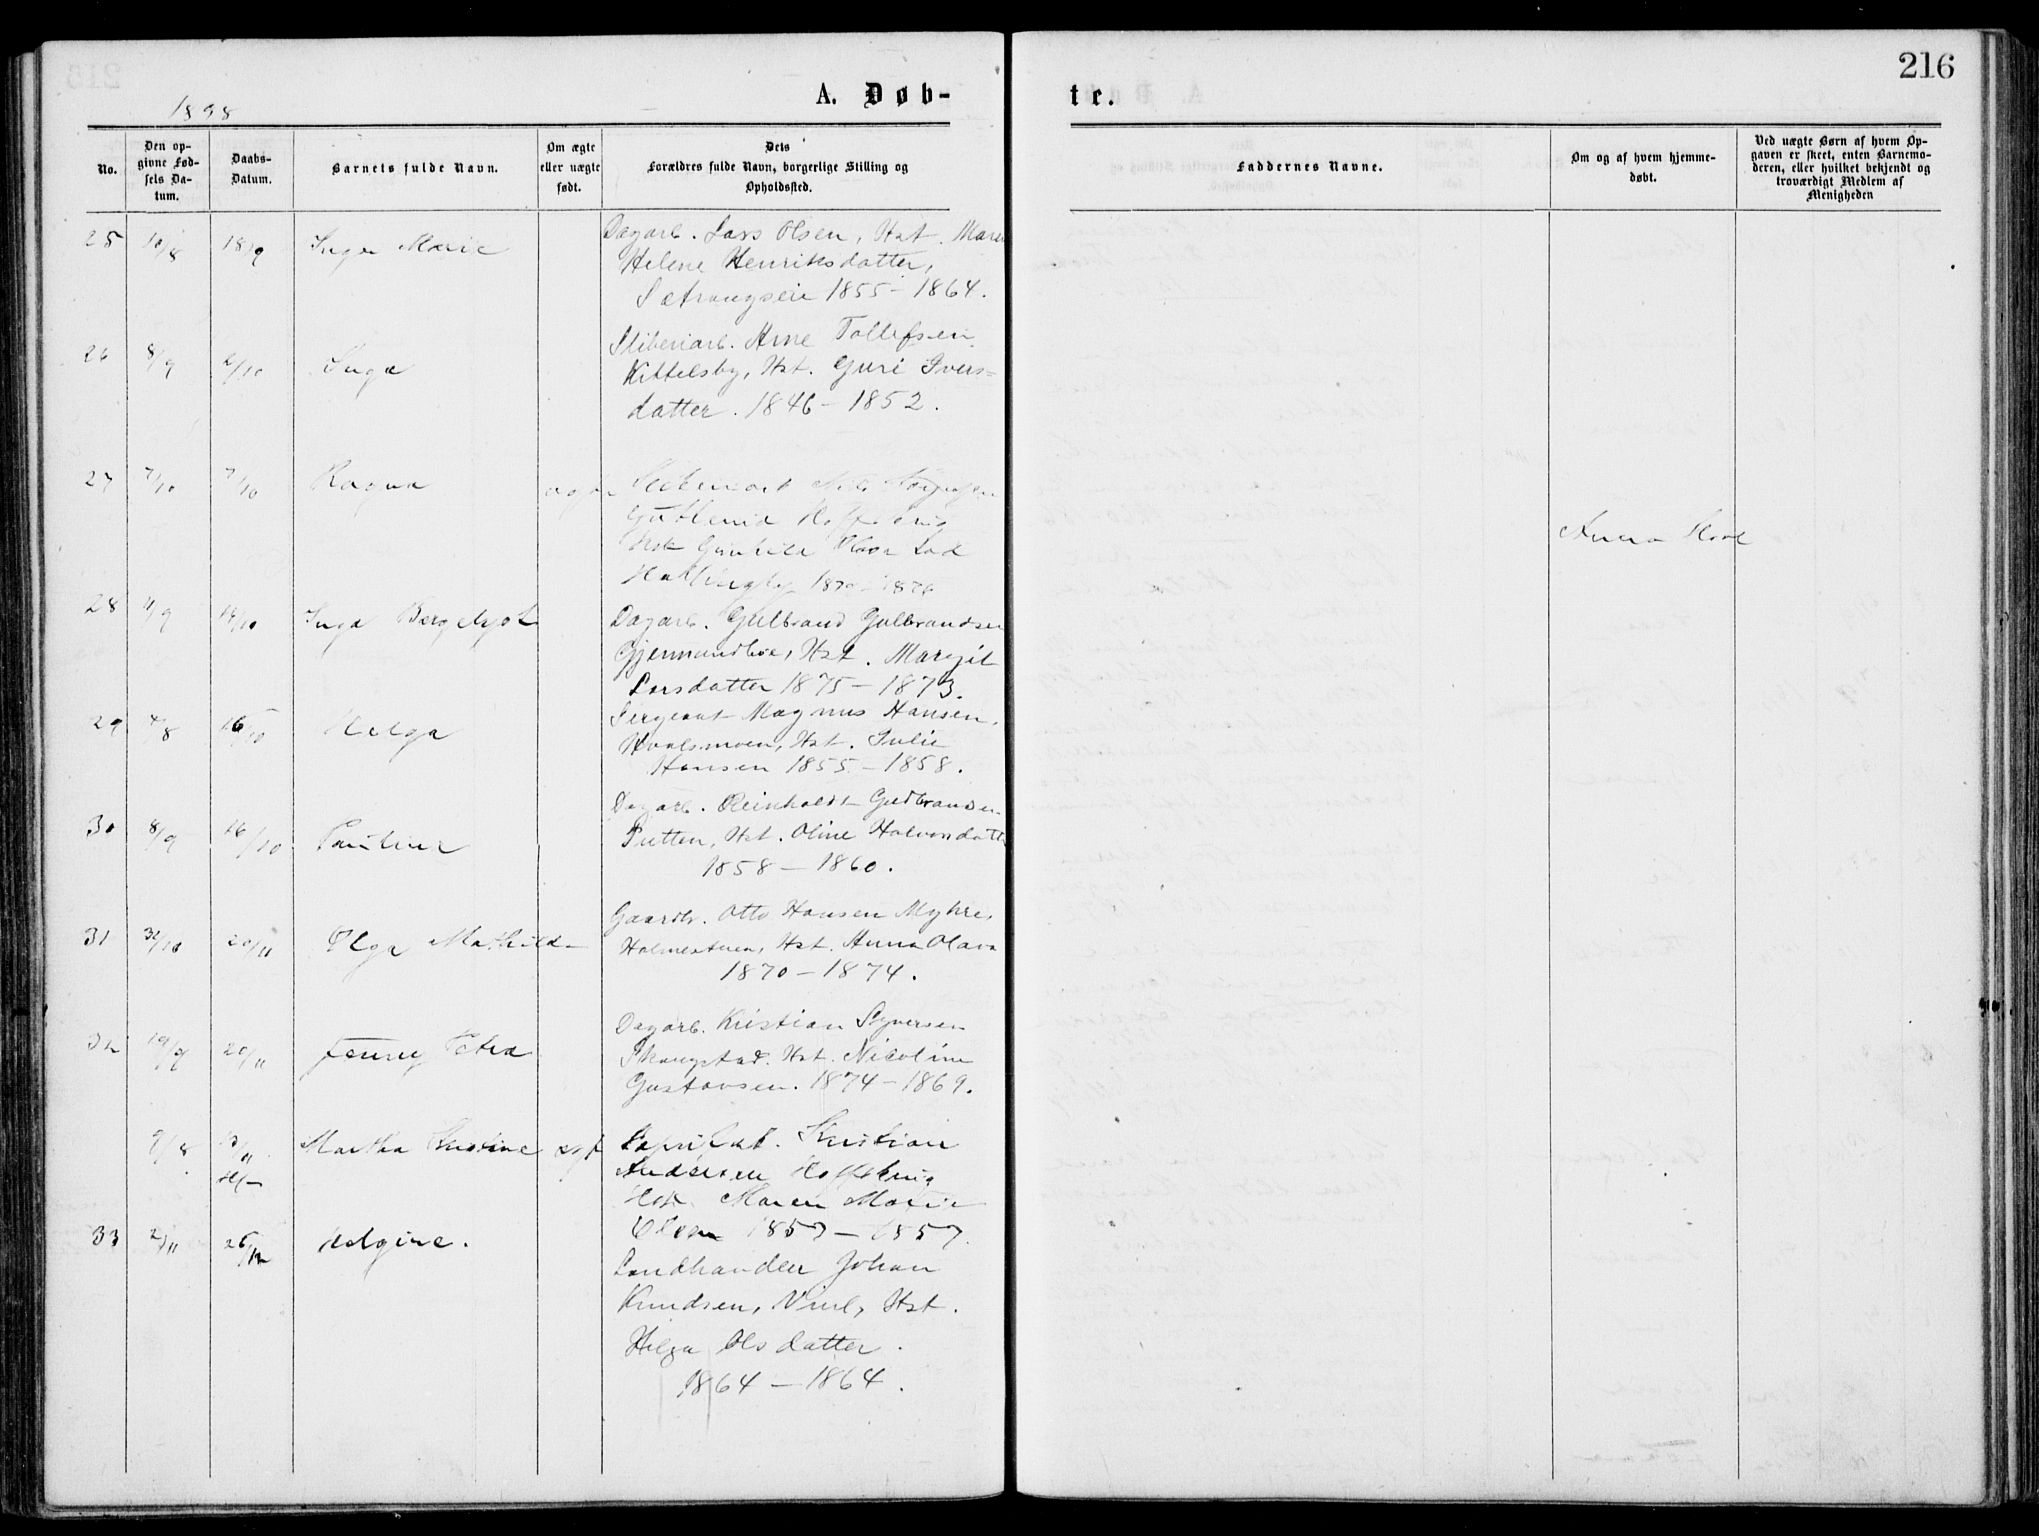 216
1898
A. Døb-
te.
No.
Den op-
givne Fød-
sels Da-
tum.
Daabs-
Datum.
Barnets fulde Navn.
Om ægte
eller uægte
født.
Dets
Forældres fulde Navn, borgerlige Stilling og
Opholdssted.
Faddernes Navne.
Om og af hvem hjemme-
døbt.
Ved uægte Børn af hvem Op-
gaven er skeet, enten Barnemo-
deren, eller hvilket bekjendt og
troværdigt Medlem af
Menigheden
25 10/8 18/9 Inga Marie
Dagarb. Lars Olsen, Hst. Maren
Helene Henriksdatter,
Sætrangseie 1855 - 1864.
26 8/9 2/10 Inga
Sliberiarb. Arne Tollefsen
Kittelsby, Hst. Guri Ivers=
datter. 1846 - 1852.
27 7/10 7/10 Ragna
Hofsbrug
Hst Gunhild
Hallingby
Anna Hval
28 11/9 Inga Bergeljot
Dagarb. Gulbrand Gulbrandsen
Gjermundboe, Hst. Margit
Larsdatter 1875 - 1873.
29 4/8 16/10 Helga
Sergeant Magnus Hansen,
Hvalsmoen, Hst. Julie
Hansen 1855 - 1858.
30 8/9 16/10 Pauline
Dagarb. Reinholdt Gudbrandsen
Putten, Hst. Oline Halvorsdatt
1858 - 1860.
31 20/11 Olga Mathilde
Gaardb. Otto Hansen Myhre,
Hst. Anna Olava
1870 - 1874.
32 19/9 20/11 Jenny Petra
Dagarb. Kristian Syversen
Skaugstad. Hst. Nicoline
Gustavsen. 1874 - 1869.
9/8 13/11 Martha Kristine
Kristian
Andersen
Hst. Maren Marie
Olsen 1857 - 1857.
33 2/11 26/12 Helgine.
Landhandler Johan
Knudsen, Viul, Hst.
Helga Olsdatter.
1864 - 1864.